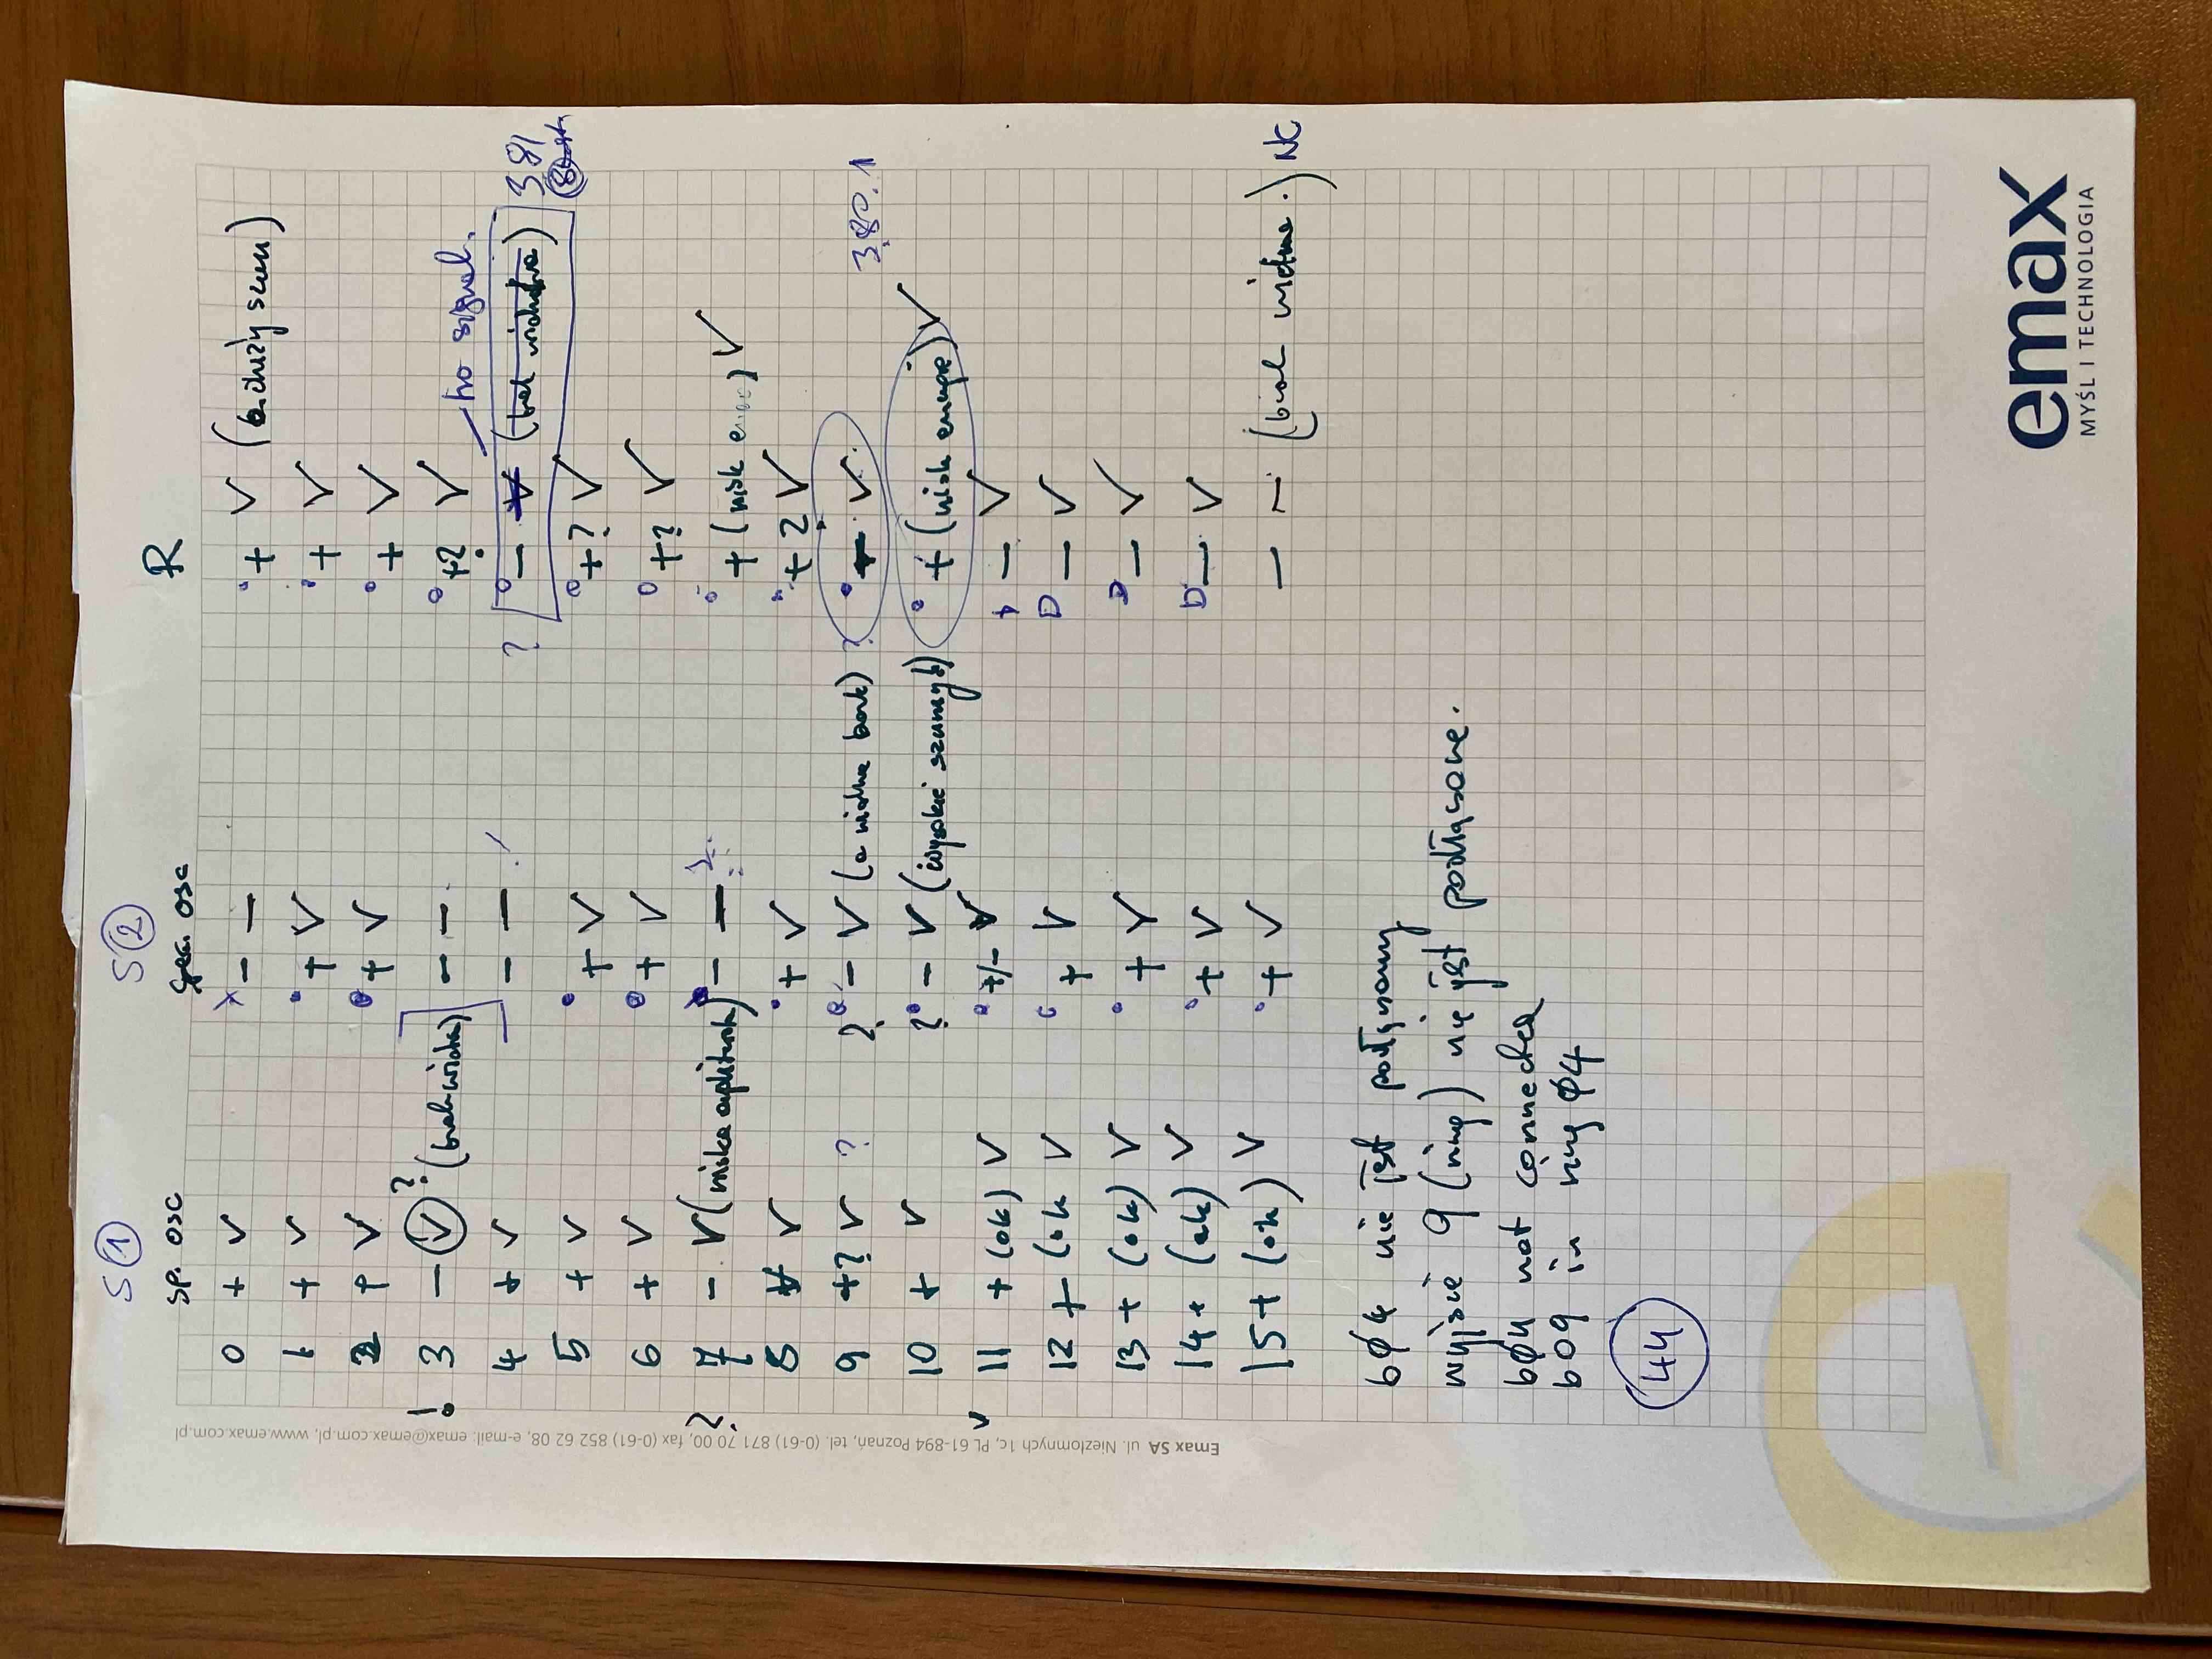 S① S② R
sp. osc spec. osc
0 + v x - - ° + v (b. duży szum)
1 + v ° + v ° + v
2 + v ° + v ° + v
! 3 - v ? (brak widma) - - . ° +? v
no signal.
4 + v - - ! ? ° - v (brak widma) 381
5 + v ° + v ° +? v
6 + v ° + v ° +? v
? 7 - v (niska amplituda) - - ? ° + (nisk ener) v
8 + v ° + v ° +? v
9 +? v ? ? ° - v (a widma brak) ? ° + v 380.1
10 + v ? ° - v (wysokie szumy) ° + (nisk energie) v
v 11 + (ok) v ° +/- v D - v
12 + (ok v ° + v D - v
13 + (ok) v ° + v D - v
14 + (ok) v ° + v D - v
15 + (ok) v ° + v - - (brak widma.) NC
bØ4 nie jest podłączony
wyjście 9 (ring) nie jest podłączone.
bØ4 not connected
b09 in ring Ø4
44
Emax SA ul. Niezłomnych 1c, PL 61-894 Poznań, tel. (0-61) 871 70 00, fax (0-61) 852 62 08, e-mail: emax@emax.com.pl, www.emax.com.pl
emax
MYŚL I TECHNOLOGIA